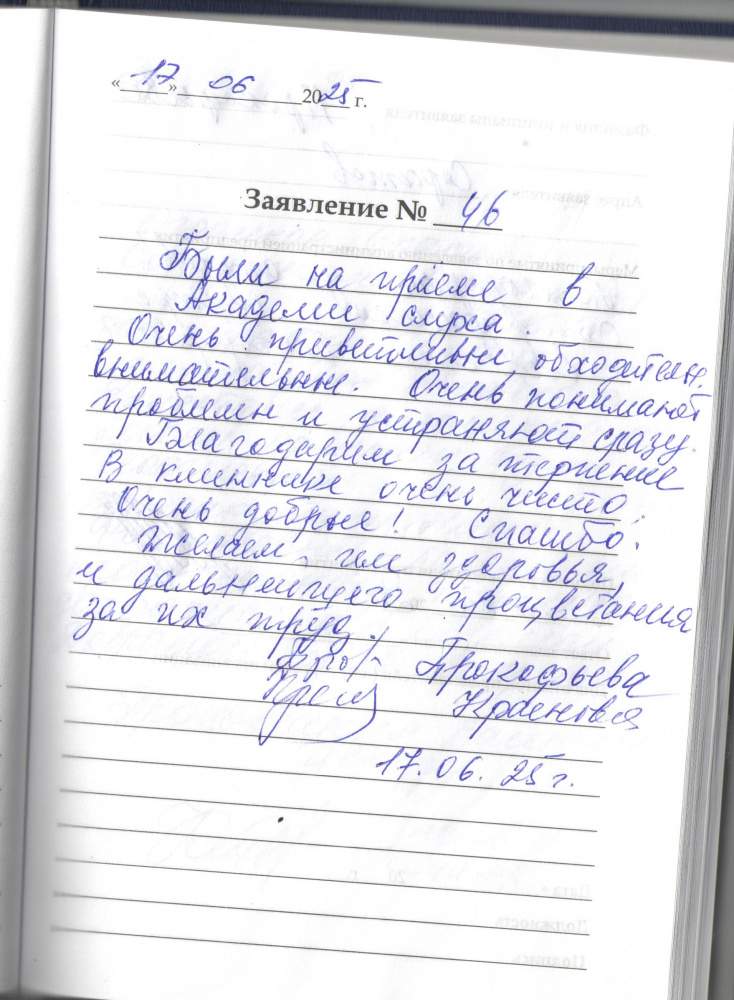 «17» 06 2025 г.
Заявление № 46
Были на приеме в
Академии слуха.
Очень приветливы, обходительн.
внимательные. Очень понимают
проблемы и устраняют сразу.
Благодарим за терпение
В клиннике очень чисто.
Очень добрые! Спасибо.
Желаем им здоровья,
и дальнейшего процветания
за их труд.
Прокофьева
17.06.25 г.